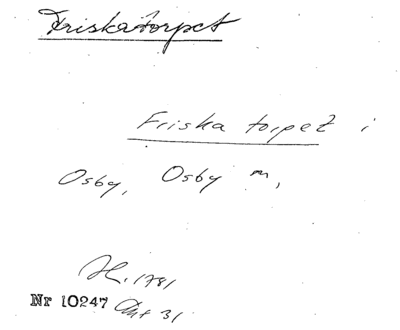 Friskatorpet
Friska torpet i
Osby, Osby m,
H. 1781
Nr 10247 Akt 31